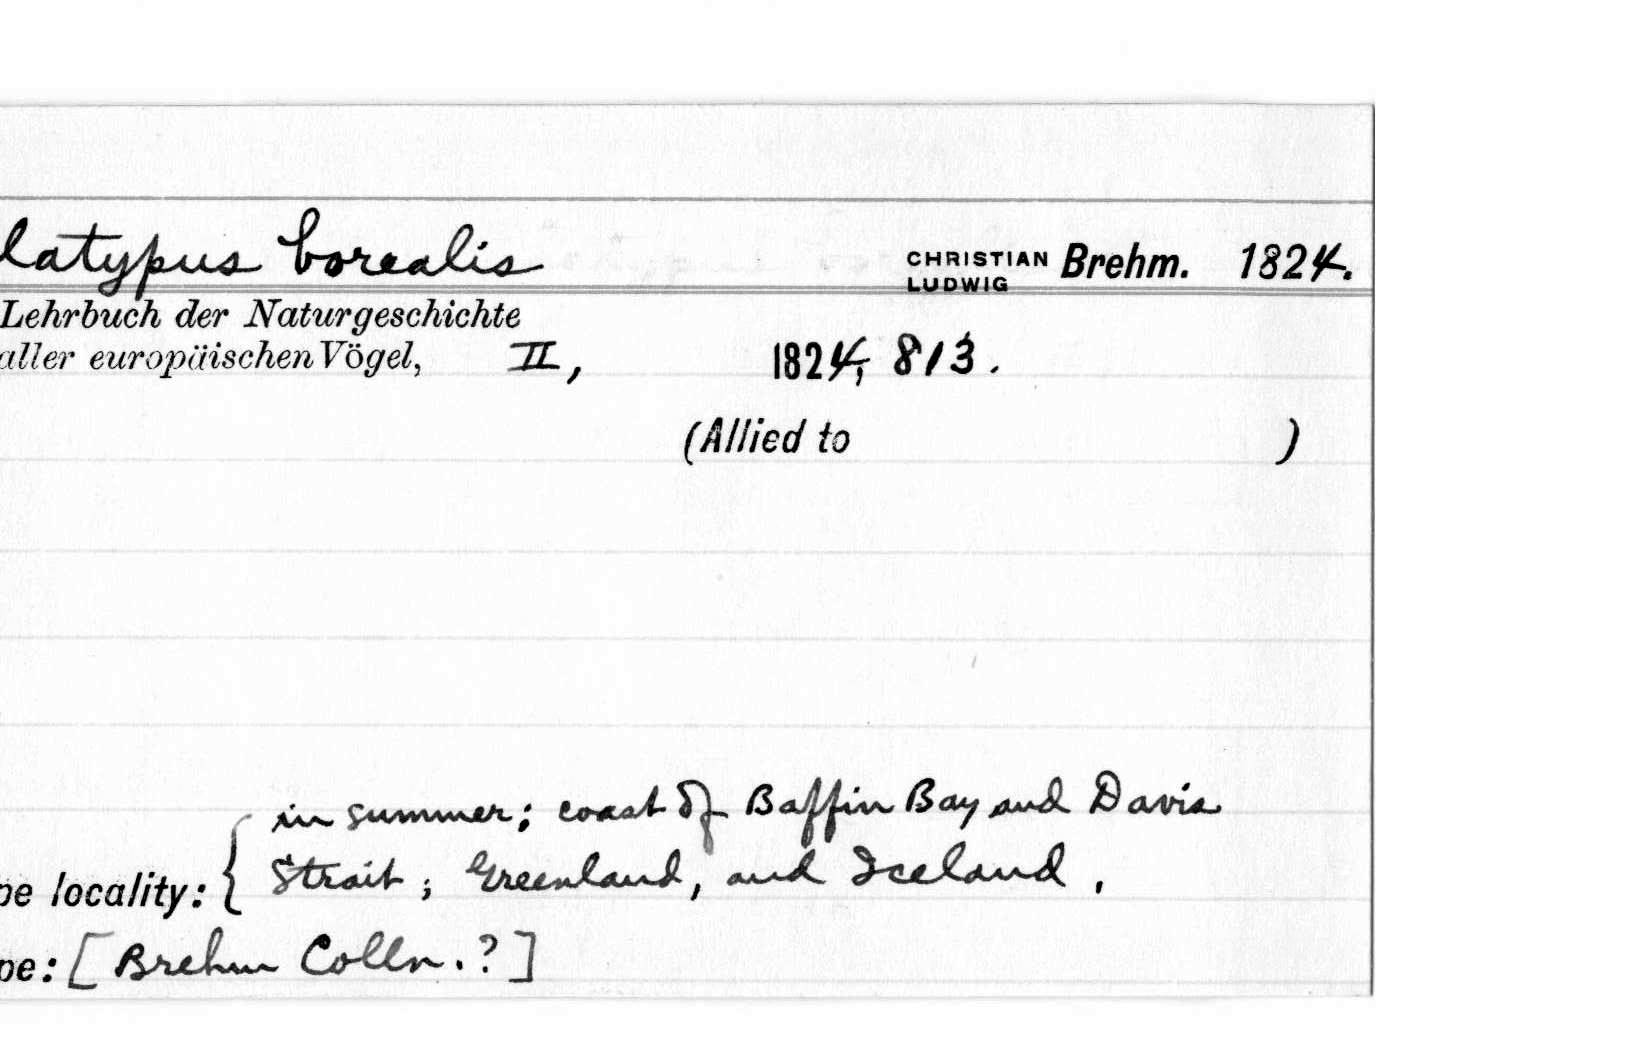 latypus borealis CHRISTIAN LUDWIG Brehm. 1824.
Lehrbuch der Naturgeschichte
aller europäischen Vögel, II, 1824, 813.
(Allied to )
in summer; coast of Baffin Bay and Davis
pe locality: { Strait; Greenland, and Iceland.
pe: [Brehm Colln.?]